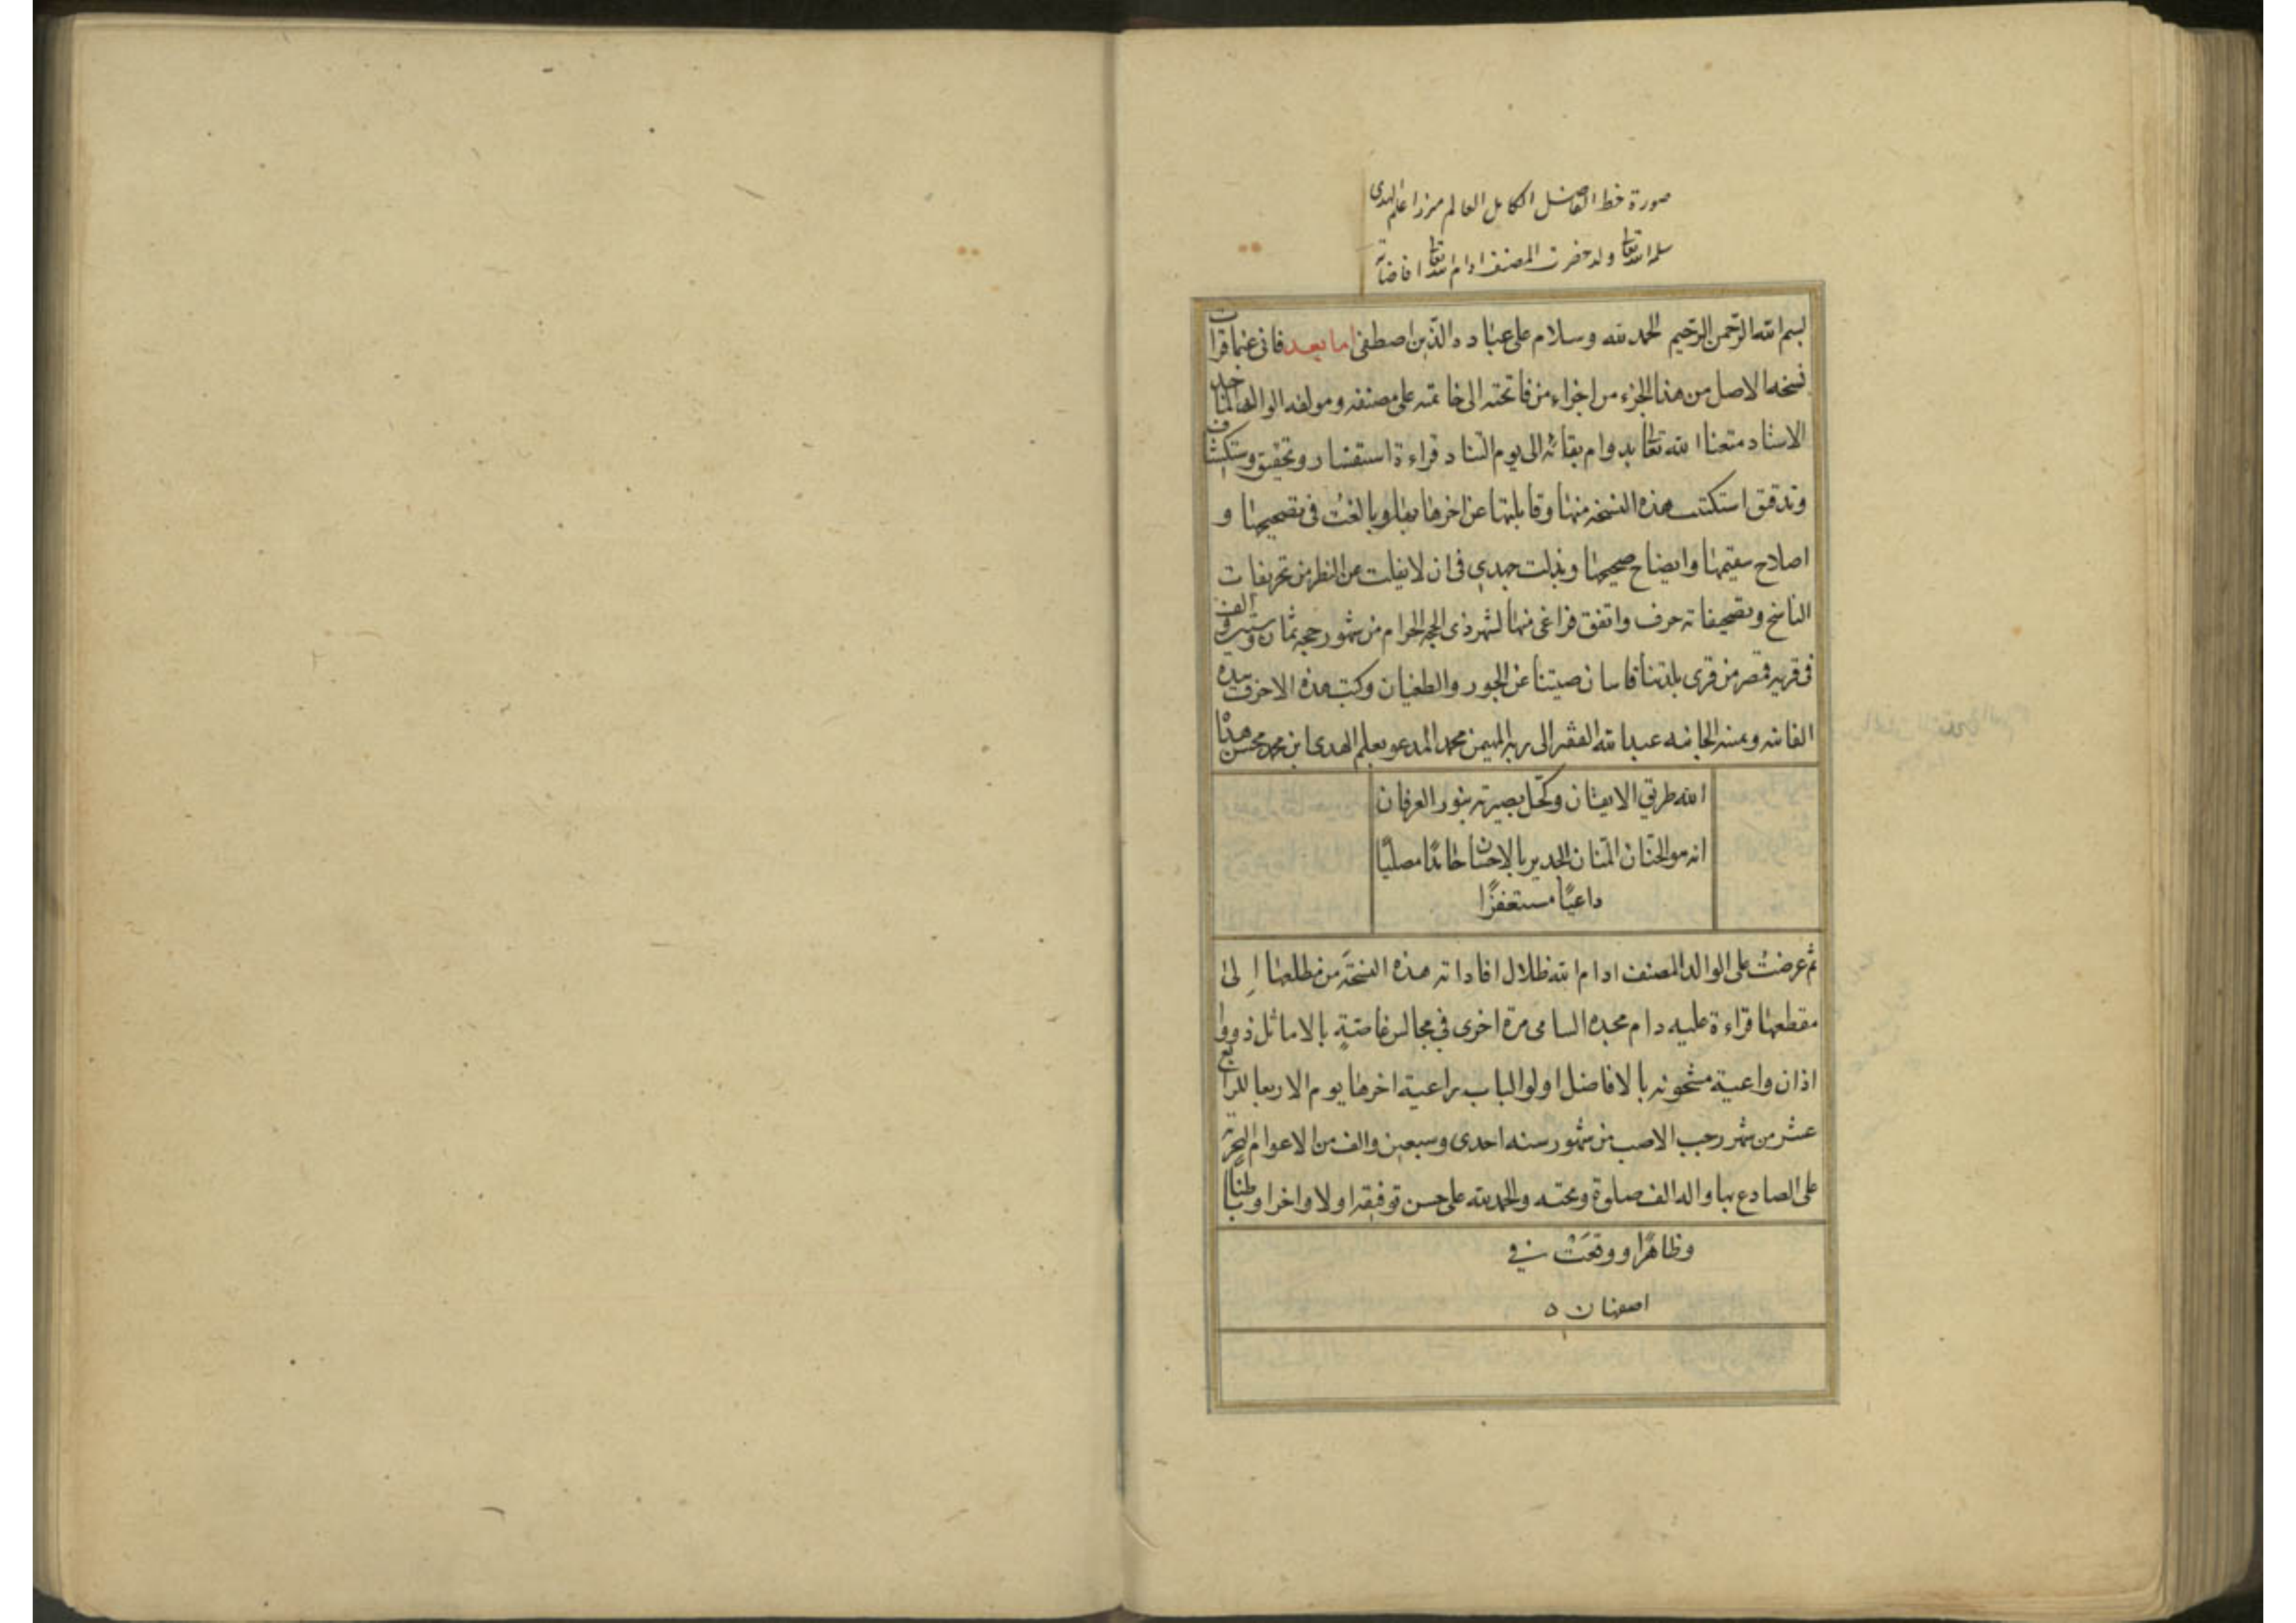 صورة خط الفاضل الكامل العالم ميرزا علم الهدى
سلمه الله تعالى ولد حضرت المصنف ادام الله تعالى افاضاته
بسم الله الرحمن الرحيم الحمد لله وسلام على عباده الذين اصطفى اما بعد فانى غبما قرات
نسخه الاصل من هذا الجزء من اجزاء من فاتحته الى خاتمته على مصنفه ومولفه الوالد الماجد
الاستاد متعنا الله تعالى بدوام بقائه الى يوم التناد قراءة استفسار وتحقيق واستكشاف
وتدقيق استكتبت هذه النسخه منها وقابلتها عن اخرها بها وبالغت فى تصحيحها و
اصلاح سقيمها وايضاح صحيحها وبذلت جهدي فى ان لا يفلت عن النظر من تحريفات
الناسخ وتصحيفاته حرف واتفق فراغى منها لشهر ذى الحجه الحرام من شهور حجه ثمان وستين والف
فى قريه قمصر من قرى بلدتنا قاسان صينتنا عن الجور والطغيان وكتب هذه الاحرف بيده
الفانيه ويمينه الجانيه عبد الله الفقير الى ربه المهيمن محمد المدعو بعلم الهدى ابن محمد محسن هداه
الله طريق الايقان وكحل بصيرته بنور العرفان
انه هو الحنان المنان الجدير بالاحسان حامدًا مصليًا
داعيًا مستغفرًا
ثم عرضت على الوالد المصنف ادام الله ظلال افاداته هذه النسخة من مطلعها إلى
مقطعها قراءة عليه دام مجده السامى مرة اخرى في مجالس غاصة بالاماثل ذووا
اذان واعية مشحونه بالافاضل اولو الباب راعية اخرها يوم الاربعا للرابع
عشر من شهر رجب الاصب من شهور سنه احدى وسبعين والف من الاعوام الهجرية
على الصادع بها واله الف صلوة وتحيه والحمد لله على حسن توفيقه اولا واخرا وباطنًا
وظاهرًا ووقعت في
اصفهان ه